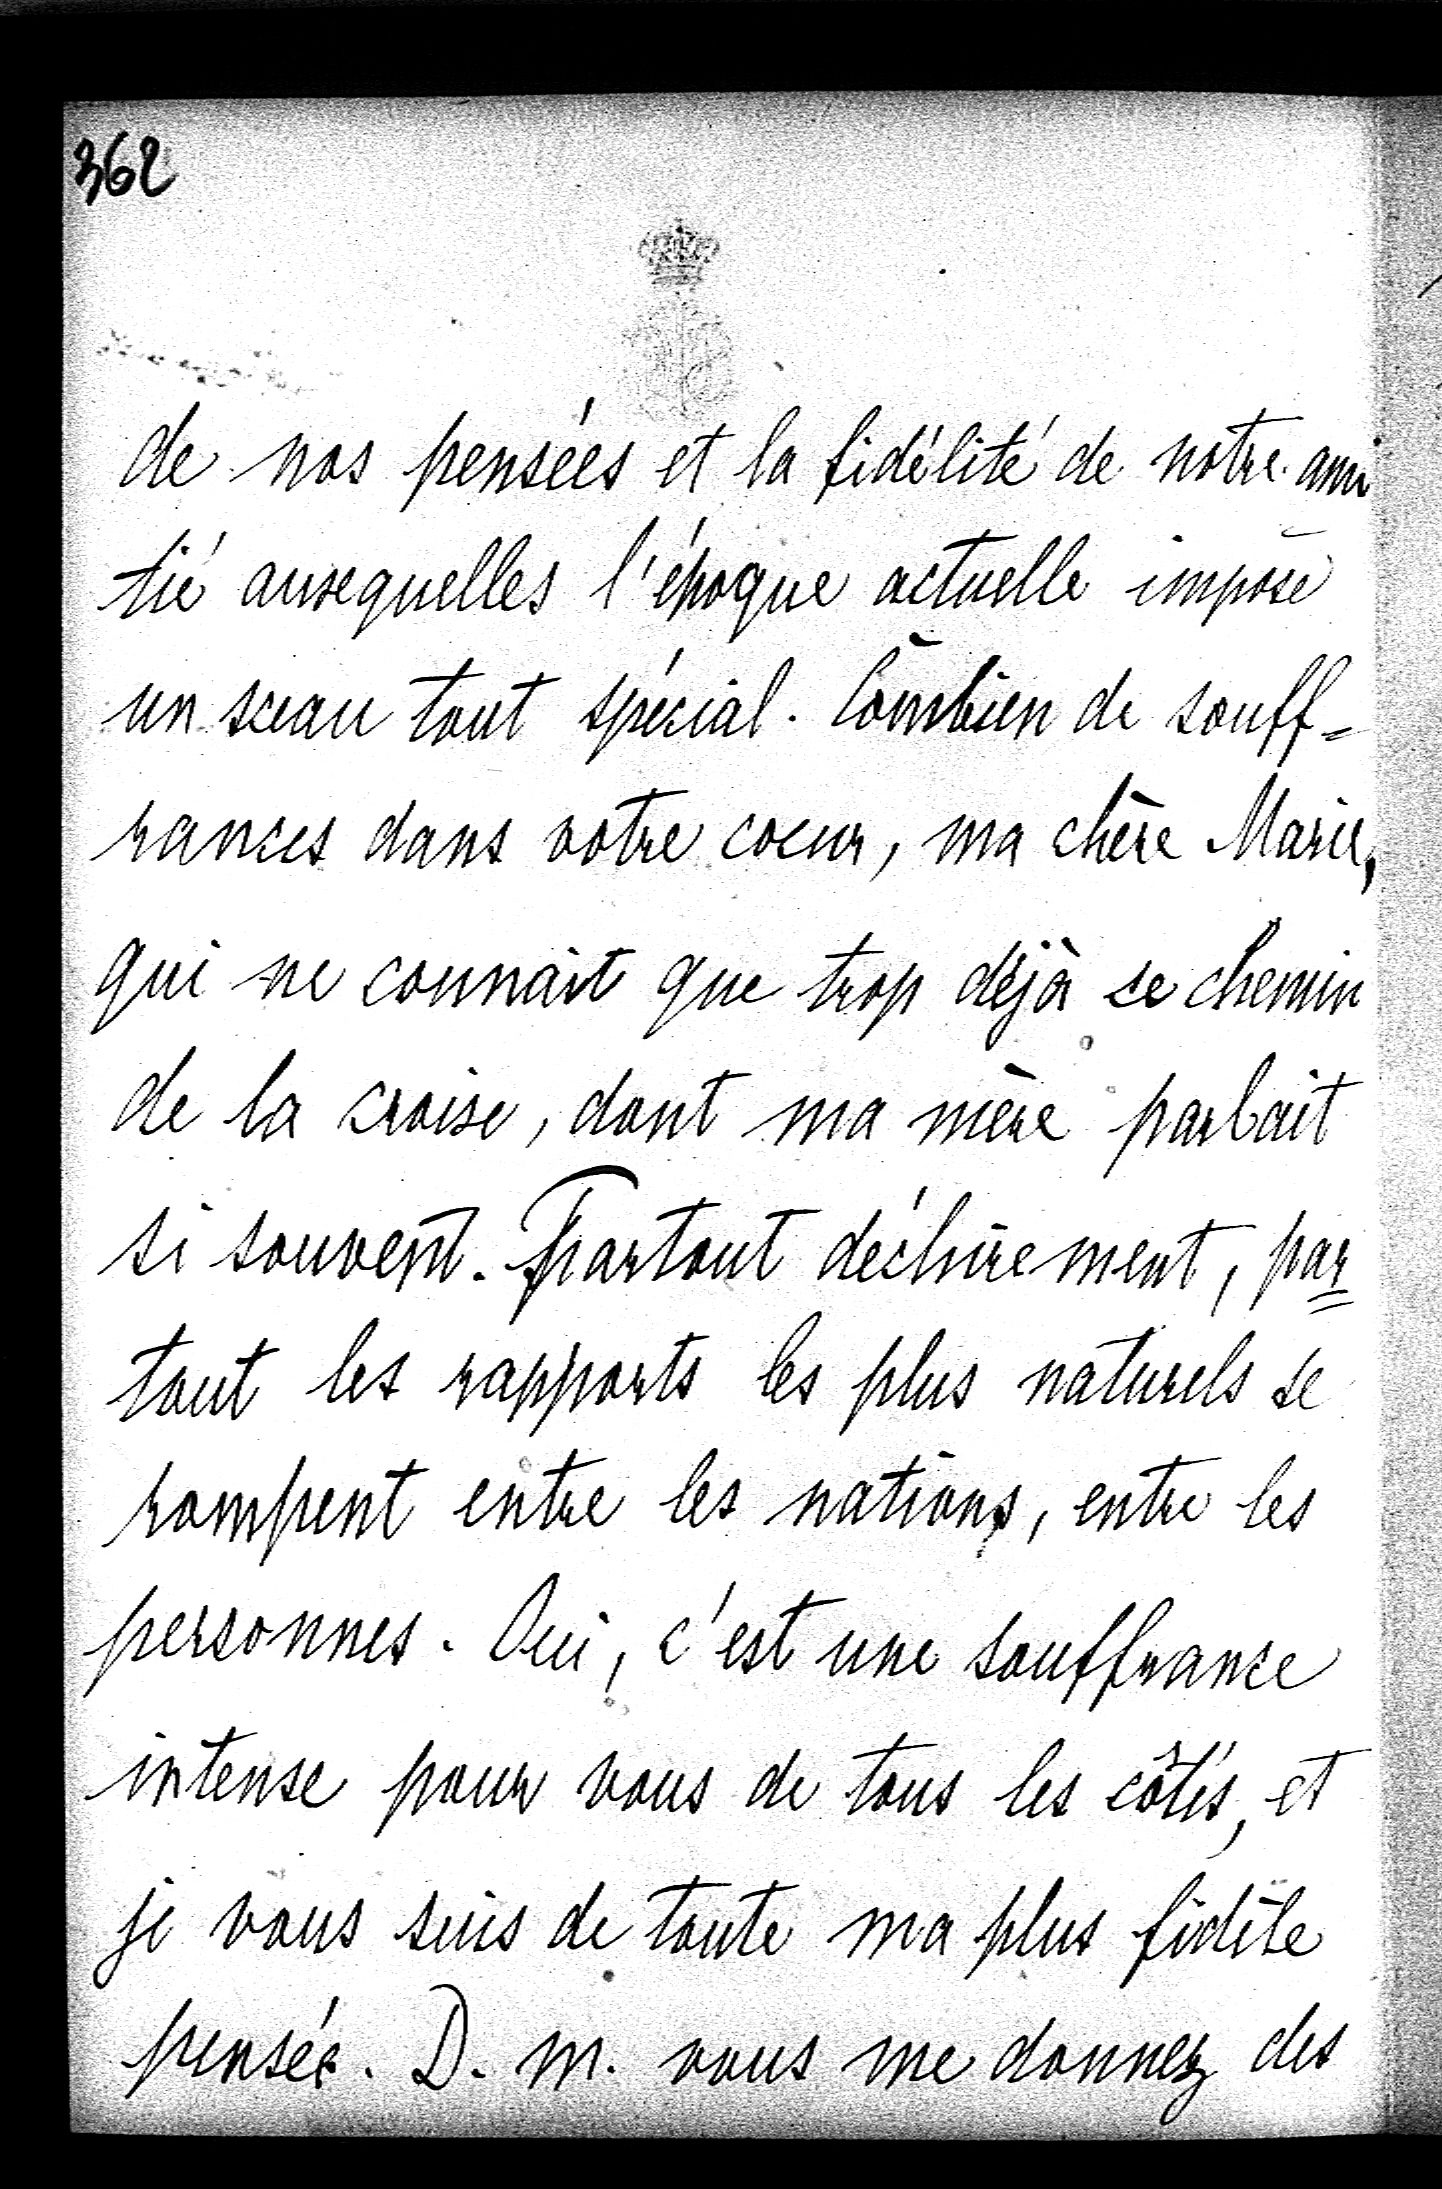 362
de nos pensées et la fidélité de notre ami
tié auxquelles l'époque actuelle impose
un sceau tout spécial. Combien de souff=
rances dans votre coeur, ma chère Marie,
qui ne connait que trop déjà ce chemin
de la croise, dont ma mère parlait
si souvent. Partout déchirement, par=
tout les rapports les plus naturels se
rompent entre les nations, entre les
personnes. Oui, c'est une souffrance
intense pour vous de tous les côtés, et
je vous suis de toute ma plus fidèle
pensée. D. m. vous me donnez des